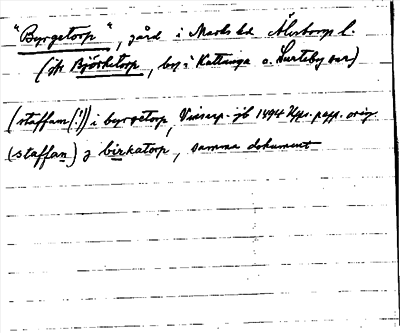 "Byrgetorp", gård i Marks hd Älvsborgs l.
(jfr Björketorp, by i Kattunga o. Surteby snr)
(staffam (!)) i byrgetorp, Vinsarp. jb 1494 Upps. papp. orig.
(staffan) j birkatorp, samma dokument